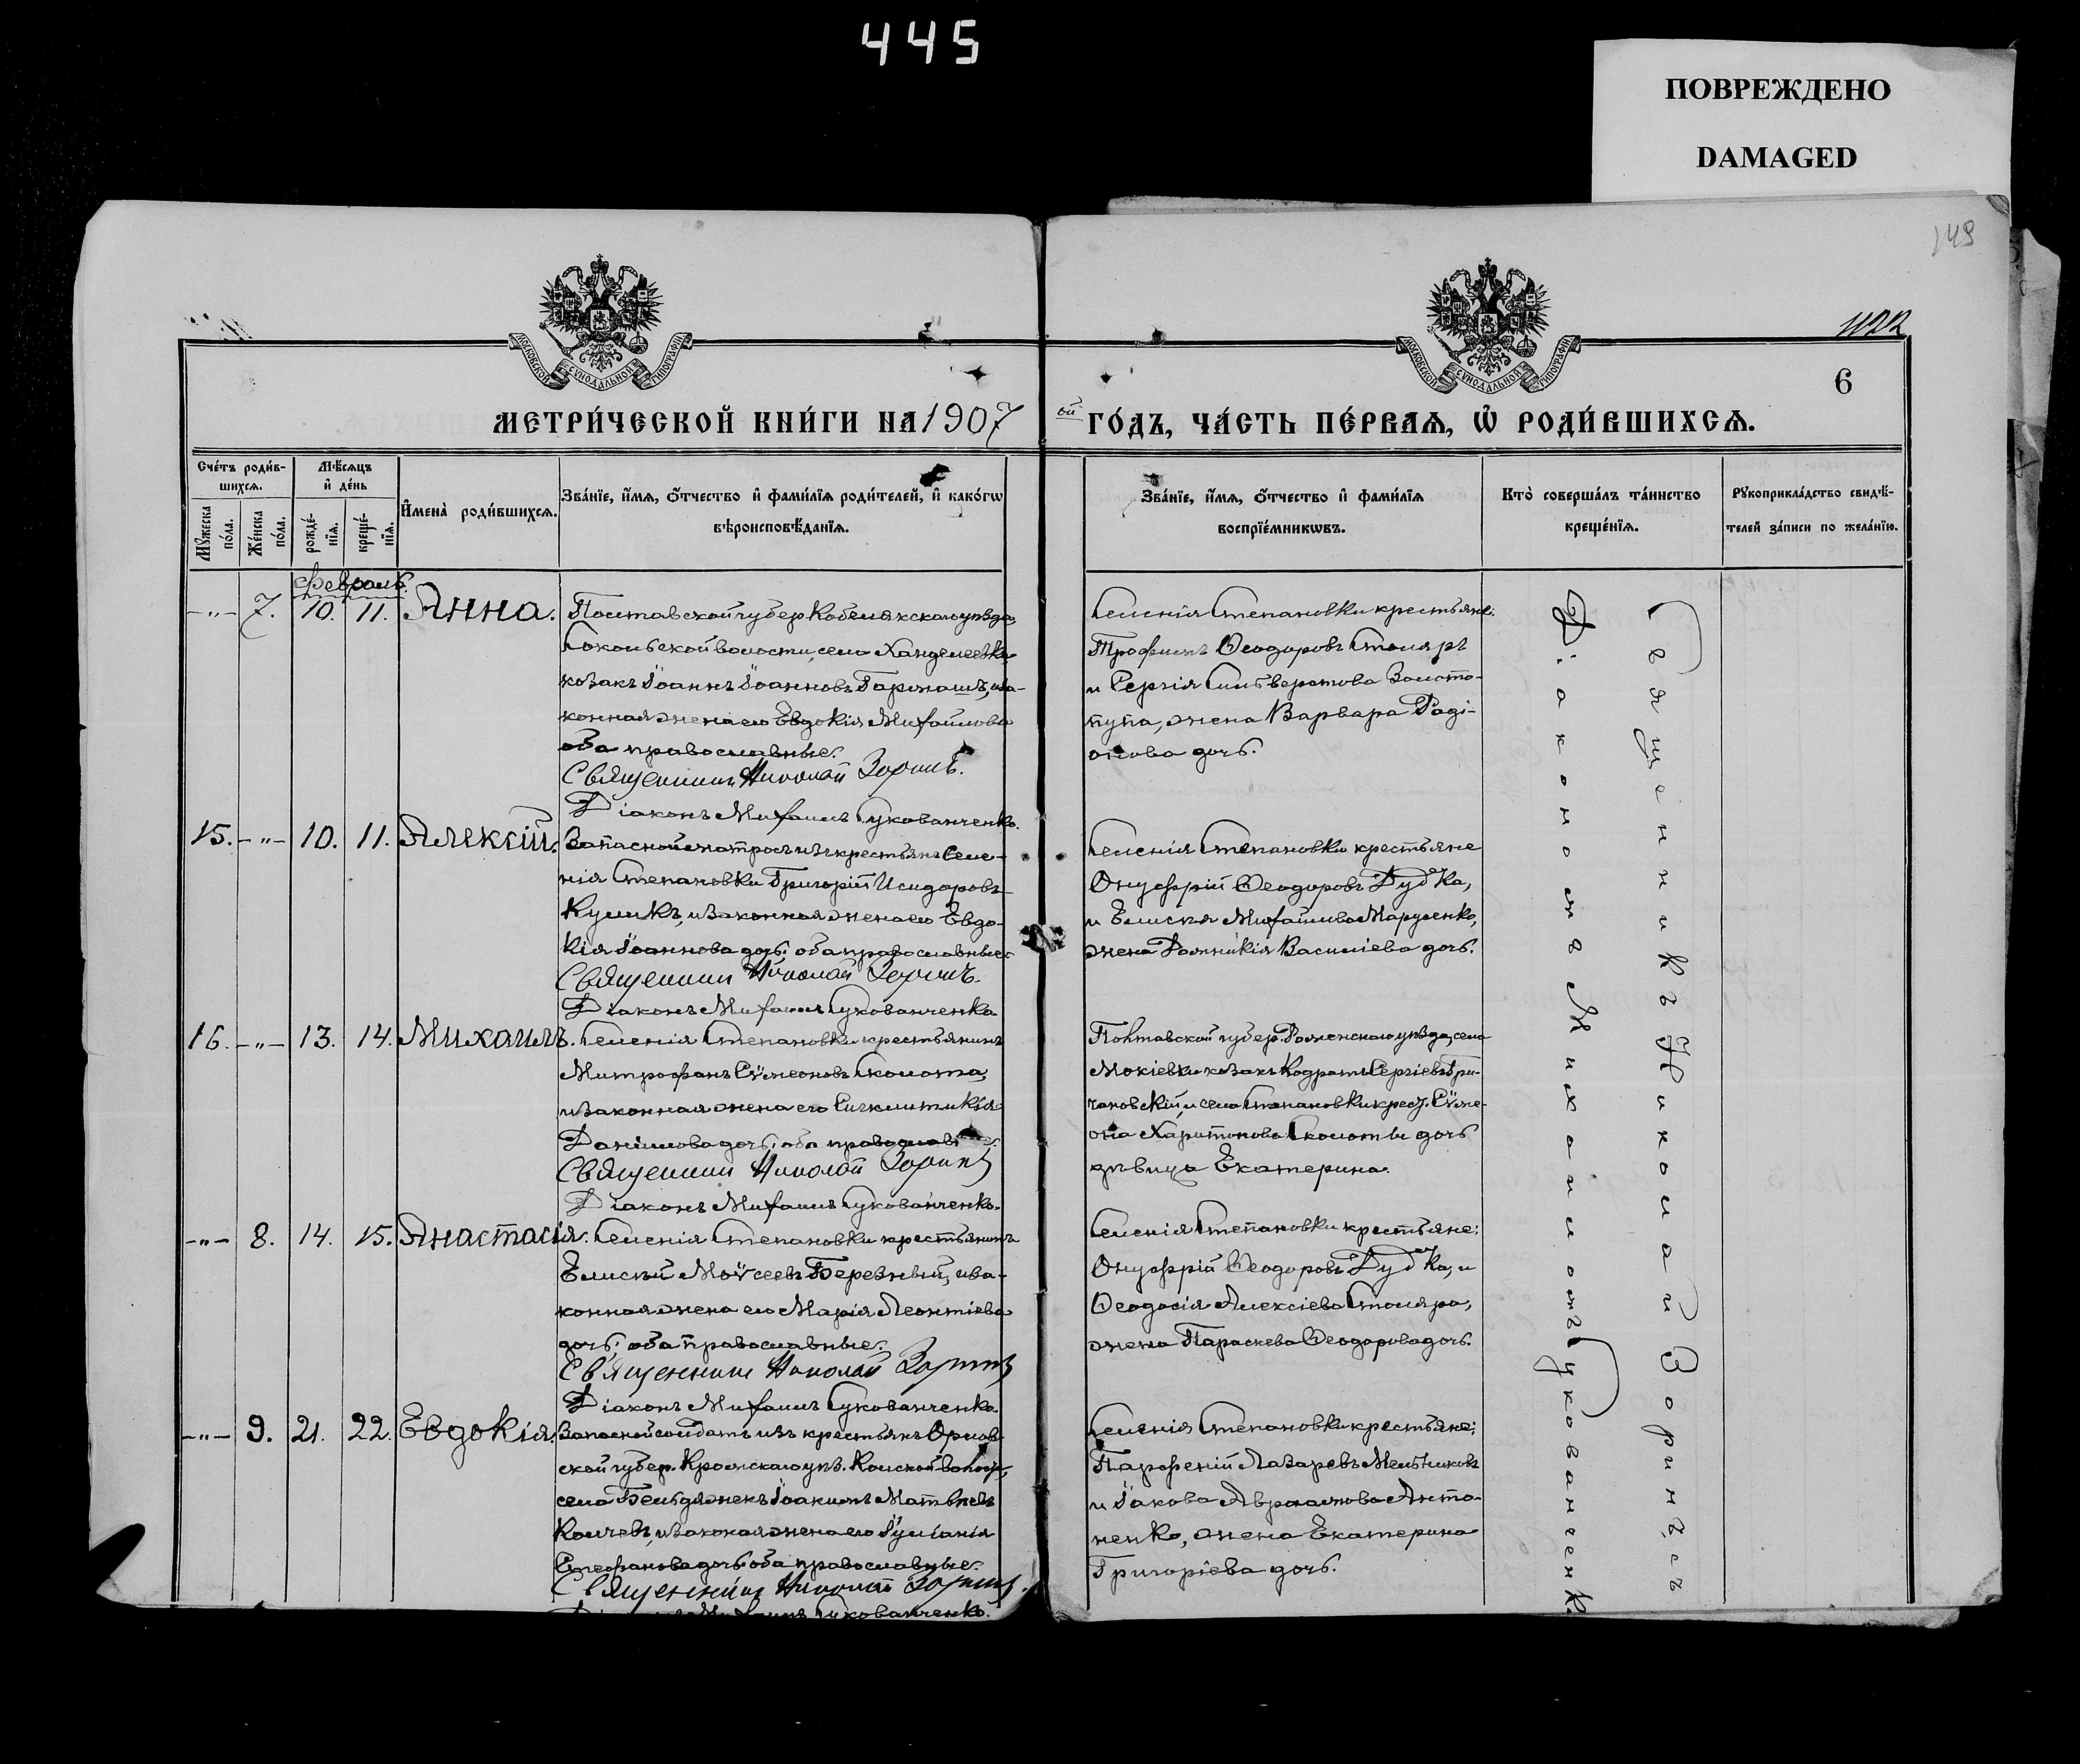 445
ПОВРЕЖДЕНО
DAMAGED
149
МОСКОВСКОЙ СѴНОДАЛЬНОЙ ТИПОГРАФІИ
МОСКОВСКОЙ СѴНОДАЛЬНОЙ ТИПОГРАФІИ
6
МЕТРИ́ЧЕСКОЙ КНИ́ГИ НА 1907
ой ГО́ДЪ, ЧА́СТЬ ПЕ́РВАЯ, Ѡ҆ РОДИ́ВШИХСЯ.
Сче́тъ роди́в-
шихся.
Мѣ́сяцъ
и҆ де́нь
Мꙋ́жеска
по́ла.
Же́нска
по́ла.
рожде́-
нїя.
креще́-
нїя.
И҆мена̀ роди́вшихся.
Зва́нїе, и҆́мя, ѻ҆́тчество и҆ фами́лїя роди́телей, и҆ како́гѡ
вѣроисповѣ́данїя.
Зва́нїе, и҆́мя, ѻ҆́тчество и҆ фами́лїя
воспрїе́мникѡвъ.
Кто̀ соверша́лъ та́инство
креще́нїя.
Рꙋкоприкла́дство свидѣ́-
телей за́писи по жела́нїю.
Февраль.
-"- 7. 10. 11. Анна.
Полтавской губер. Кобелякскаго уѣзда
Сокольской волости, села Ханделеевки
козакъ Іоаннъ Іоанновъ Гаркашъ, и за-
конная жена его Евдокія Михайлова
оба православные.
Священникъ Николай Зоринъ.
Діаконъ Михаилъ Сукованченко.
Селенія Степановки крестьяне:
Трофимъ Ѳеодоровъ Столяръ
и Сергія Сильверстова Золото-
тупа, жена Варвара Раді-
онова дочь.
15. -"- 10. 11. Алексій.
Запасной матросъ изъ крестьянъ Селе-
нія Степановки Григорій Исидоровъ
Куликъ, и законная жена его Евдо-
кія Іоаннова дочь; оба православные.
Священникъ Николай Зоринъ.
Діаконъ Михаилъ Сукованченко
Селенія Степановки крестьяне
Онуфрій Ѳеодоровъ Дудка,
и Елисея Михайлова Марусенко,
жена Домникія Василіева дочь.
16. -"- 13. 14. Михаилъ.
Селенія Степановки крестьянинъ
Митрофанъ Сѵмеоновъ Сколота,
и законная жена его Сигклитикія
Даніилова дочь; оба православные.
Священникъ Николай Зоринъ
Діаконъ Михаилъ Сукованченко.
Полтавской губер. Роменскаго уѣзда, села
Мокіевки козакъ Кодратъ Сергіевъ Гри-
чановскій, и села Степановки крест. Сѵме-
она Харитонова Сколоты дочь
дѣвица Екатерина.
-"- 8. 14. 15. Анастасія.
Селенія Степановки крестьянинъ
Елисей Моѵсеевъ Березный, и за-
конная жена его Марія Леонтіева
дочь; оба православные.
Священникъ Николай Зоринъ
Діаконъ Михаилъ Сукованченко.
Селенія Степановки крестьяне:
Онуфрій Ѳеодоровъ Дудка, и
Ѳеодосія Алексіева Столяра,
жена Параскева Ѳеодорова дочь.
-"- 9. 21. 22. Евдокія.
Запасной солдатъ изъ крестьянъ Орлов-
ской губер. Кромскаго уѣз.
села Іоакимъ Матвѣевъ
и законая жена его Іуліанія
Стефанова дочь; оба православные.
Священникъ Николай Зоринъ.
Діаконъ Михаилъ Сукованченко.
Селенія Степановки крестьяне:
Парфеній Лазаревъ Мельниковъ
и Іакова Авраамова Анто-
ненко, жена Екатерина
Григоріева дочь.
Священникъ Николай Зоринъ съ
Діакономъ Михаиломъ Сукованченк.